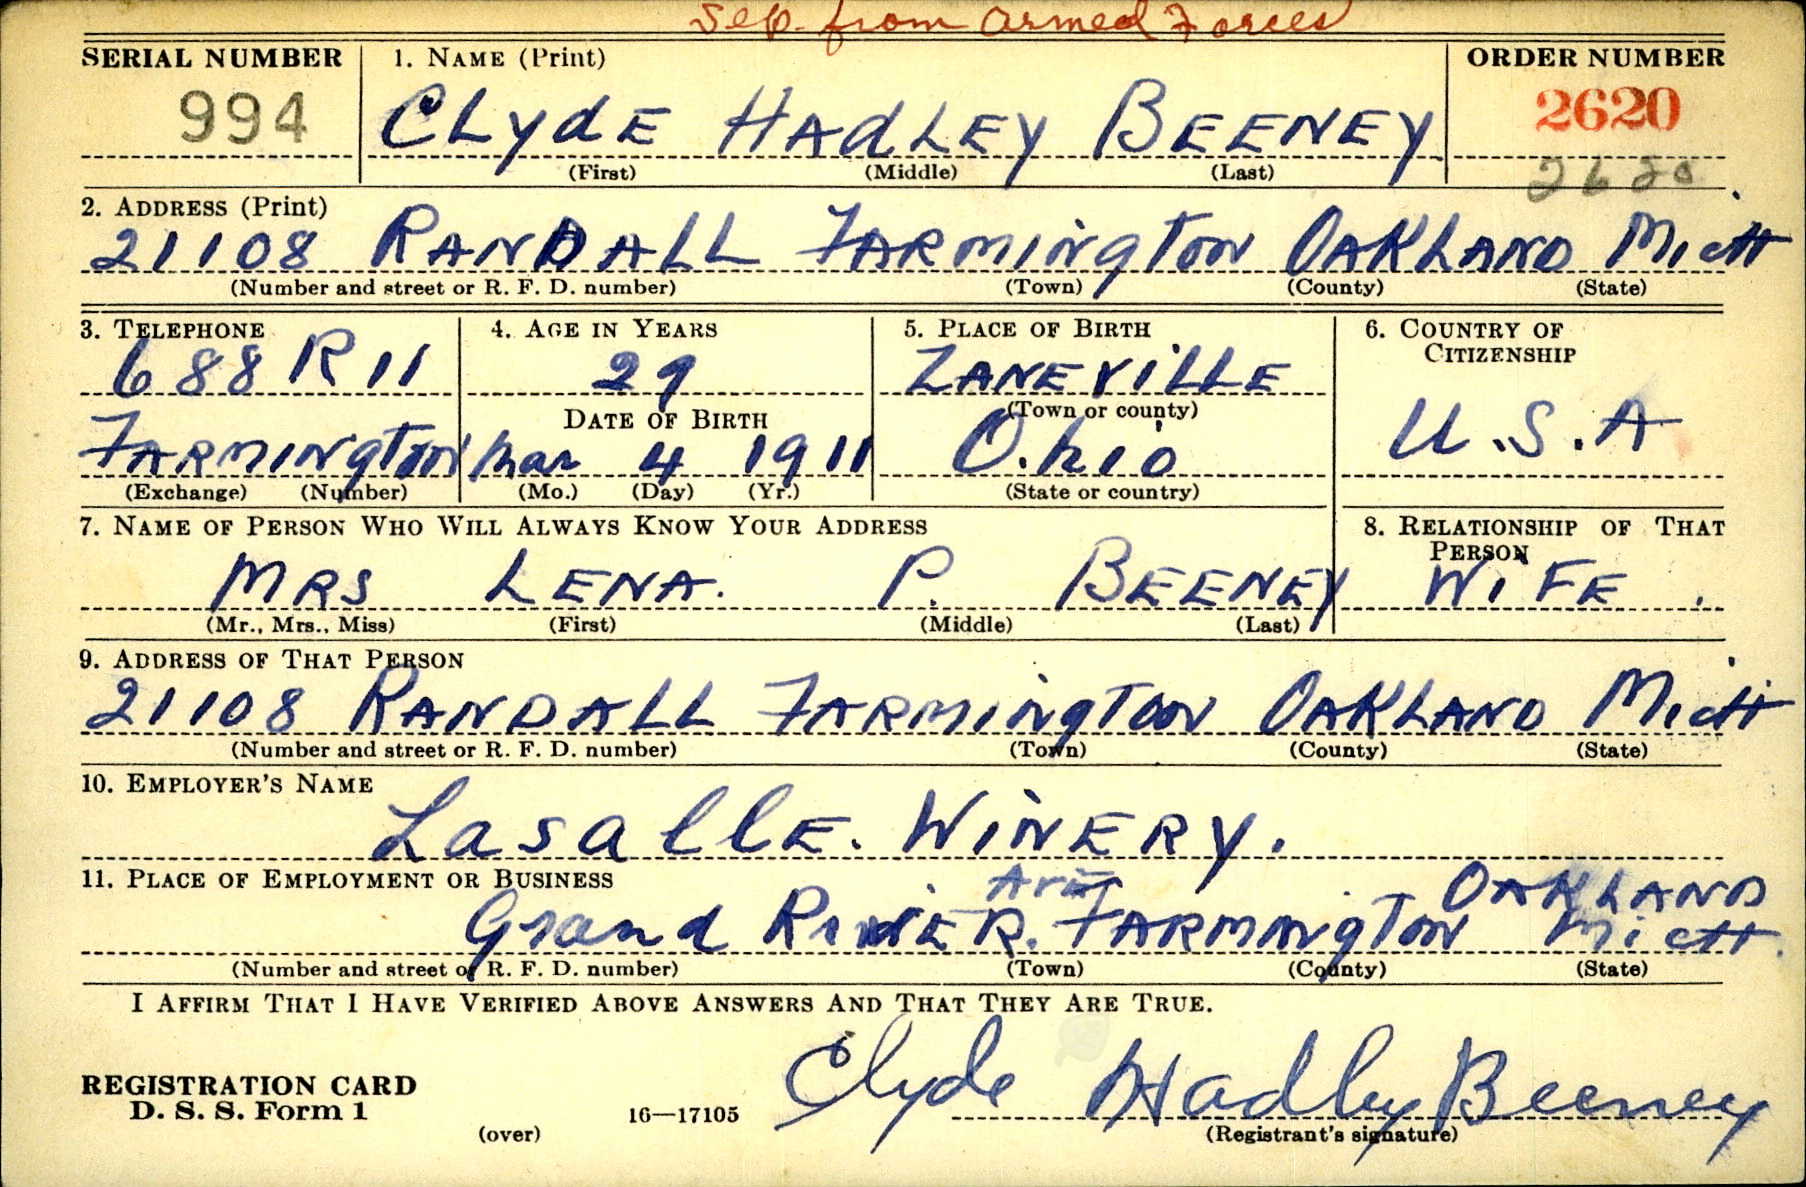 Sep. from Armed Forces
SERIAL NUMBER 1. NAME (Print) ORDER NUMBER
994 CLYDE HADLEY BEENEY 2620
(First) (Middle) (Last)
2620
2. ADDRESS (Print)
21108 RANDALL FARMINGTON OAKLAND MICH
(Number and street or R. F. D. number) (Town) (County) (State)
3. TELEPHONE 4. AGE IN YEARS 5. PLACE OF BIRTH 6. COUNTRY OF CITIZENSHIP
688 R 11 29 ZANEVILLE
DATE OF BIRTH (Town or county)
FARMINGTON Mar 4 1911 Ohio U.S.A
(Exchange) (Number) (Mo.) (Day) (Yr.) (State or country)
7. NAME OF PERSON WHO WILL ALWAYS KNOW YOUR ADDRESS 8. RELATIONSHIP OF THAT PERSON
MRS LENA. P. BEENEY WIFE.
(Mr., Mrs., Miss) (First) (Middle) (Last)
9. ADDRESS OF THAT PERSON
21108 RANDALL FARMINGTON OAKLAND MICH
(Number and street or R. F. D. number) (Town) (County) (State)
10. EMPLOYER'S NAME
LasallE. WINERY.
11. PLACE OF EMPLOYMENT OR BUSINESS
OAKLAND
Grand RIVER. FARMINGTON MICH.
(Number and street or R. F. D. number) (Town) (County) (State)
I AFFIRM THAT I HAVE VERIFIED ABOVE ANSWERS AND THAT THEY ARE TRUE.
Clyde Hadley Beeney
REGISTRATION CARD
D. S. S. Form 1 (over) 16—17105 (Registrant's signature)